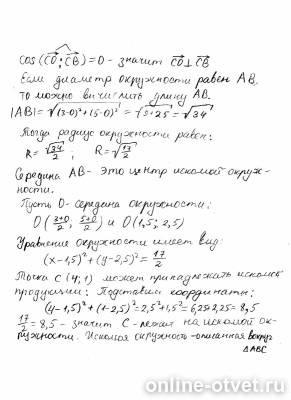 cos(CD; CB) = 0 - значит CD ⊥ CB
Если диаметр окружности равен AB,
то можно вычислить длину AB.
|AB| = √(3-0)²+(5-0)² = √9+25 = √34
Тогда радиус окружности равен:
R = √34/2 ; R = √17/2
Середина AB - это центр искомой окруж-
ности.
Пусть O - середина окружности:
O(3+0/2; 5+0/2) и O(1,5; 2,5)
Уравнение окружности имеет вид:
(x-1,5)² + (y-2,5)² = 17/2
Точка C(4;1) может принадлежать искомой
продукции: Подставим координаты:
(4-1,5)² + (1-2,5)² = 2,5² + 1,5² = 6,25 + 2,25 = 8,5
17/2 = 8,5 - значит C - лежит на искомой ок-
ружности. Искомая окружность - описанная вокруг
ΔABC
online-otvet.ru